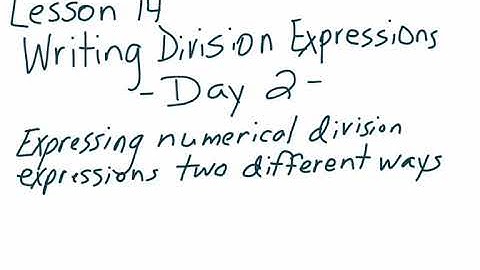 Lesson 14
Writing Division Expressions
- Day 2 -
Expressing numerical division
expressions two different ways